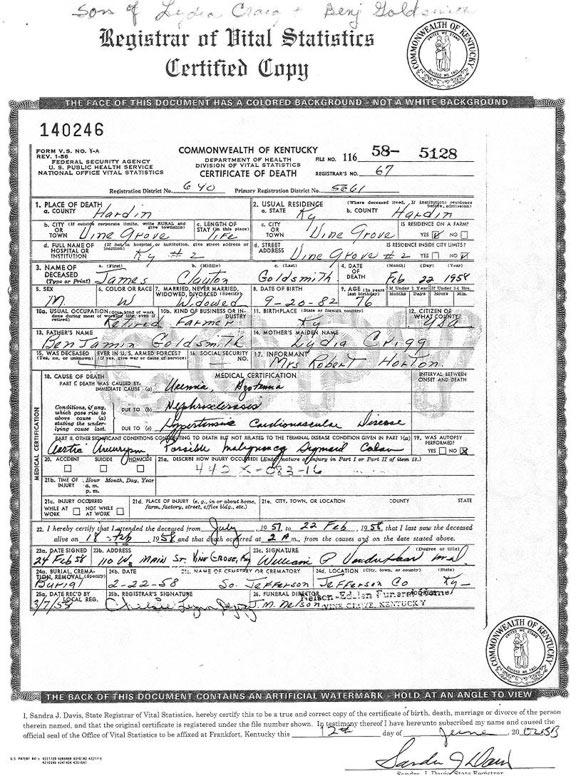 Son of Lydia Craig + Benj Goldsmith
Registrar of Vital Statistics
Certified Copy
COMMONWEALTH OF KENTUCKY
THE FACE OF THIS DOCUMENT HAS A COLORED BACKGROUND - NOT A WHITE BACKGROUND
140246
FORM V.S. NO. 1-A
REV. 1-56
FEDERAL SECURITY AGENCY
U. S. PUBLIC HEALTH SERVICE
NATIONAL OFFICE VITAL STATISTICS
COMMONWEALTH OF KENTUCKY
DEPARTMENT OF HEALTH
DIVISION OF VITAL STATISTICS
CERTIFICATE OF DEATH
FILE NO. 116 58- 5128
REGISTRAR'S NO. 67
Registration District No. 640 Primary Registration District No. 5261
1. PLACE OF DEATH
a. COUNTY Hardin
2. USUAL RESIDENCE (Where deceased lived. If institution: residence before admission)
a. STATE Ky b. COUNTY Hardin
b. CITY (If outside corporate limits, write RURAL and give township) OR TOWN Vine Grove
c. LENGTH OF STAY (in this place) life
c. CITY OR TOWN Vine Grove
IS RESIDENCE ON A FARM? YES NO
d. FULL NAME OF HOSPITAL OR INSTITUTION (If not in hospital or institution, give street address or location) Ky #2
d. STREET ADDRESS Vine Grove #2
IS RESIDENCE INSIDE CITY LIMITS? YES NO
3. NAME OF DECEASED (Type or Print) a. (First) James b. (Middle) Clayton c. (Last) Goldsmith
4. DATE OF DEATH (Month) (Day) (Year) Feb 22 1958
5. SEX M
6. COLOR OR RACE W
7. MARRIED, NEVER MARRIED, WIDOWED, DIVORCED (Specify) Widowed
8. DATE OF BIRTH 9-20-82
9. AGE (In years last birthday) 76
10a. USUAL OCCUPATION Retired
10b. KIND OF BUSINESS OR INDUSTRY Farmer
11. BIRTHPLACE (State or foreign country) Ky
12. CITIZEN OF WHAT COUNTRY? USA
13. FATHER'S NAME Benjamin Goldsmith
14. MOTHER'S MAIDEN NAME Lydia Crigg
15. WAS DECEASED EVER IN U.S. ARMED FORCES?
(Yes, no, or unknown) (If yes, give war or dates of service)
16. SOCIAL SECURITY NO.
17. INFORMANT Mrs Robert Horton
MEDICAL CERTIFICATION
18. CAUSE OF DEATH
MEDICAL CERTIFICATION
INTERVAL BETWEEN ONSET AND DEATH
PART I. DEATH WAS CAUSED BY:
IMMEDIATE CAUSE (a) Uremia Azotemia
Conditions, if any, which gave rise to above cause (a) stating the underlying cause last.
DUE TO (b) Nephrosclerosis
DUE TO (c) Hypertensive Cardiovascular Disease
PART II. OTHER SIGNIFICANT CONDITIONS CONTRIBUTING TO DEATH BUT NOT RELATED TO THE TERMINAL DISEASE CONDITION GIVEN IN PART I(a)
Aortic Aneurysm Possible malignancy Sigmoid Colon
19. WAS AUTOPSY PERFORMED? YES NO
20. ACCIDENT SUICIDE HOMICIDE
21a. DESCRIBE HOW INJURY OCCURRED (Enter nature of injury in Part I or Part II of item 18.)
442 X-033-16
21b. TIME OF INJURY Hour Month, Day, Year
a. m.
p. m.
21c. INJURY OCCURRED
WHILE AT WORK NOT WHILE AT WORK
21d. PLACE OF INJURY (e. g., in or about home, farm, factory, street, office bldg., etc.)
21e. CITY, TOWN, OR LOCATION COUNTY STATE
22. I hereby certify that I attended the deceased from July, 1957 to 22 Feb, 1958 that I last saw the deceased
alive on 18 Feb 1958 and that death occurred at 2 A m., from the causes and on the date stated above.
23a. DATE SIGNED 24 Feb 58
23b. ADDRESS 110 W. Main St. Vine Grove, Ky
23c. SIGNATURE (Degree or title) William P. m.d.
24a. BURIAL, CREMATION, REMOVAL (Specify) Burial
24b. DATE 2-22-58
24c. NAME OF CEMETERY OR CREMATORY So. Jefferson
24d. LOCATION (City, town, or county) (State) Jefferson Co Ky-
25a. DATE REC'D BY LOCAL REG. 3/7/58
25b. REGISTRAR'S SIGNATURE
26. FUNERAL DIRECTOR J. M. Nelson
Nelson-Edelen Funeral Home
VINE GROVE, KENTUCKY
COPY
COMMONWEALTH OF KENTUCKY
THE BACK OF THIS DOCUMENT CONTAINS AN ARTIFICIAL WATERMARK - HOLD AT AN ANGLE TO VIEW
I, Sandra J. Davis, State Registrar of Vital Statistics, hereby certify this to be a true and correct copy of the certificate of birth, death, marriage or divorce of the person
therein named, and that the original certificate is registered under the file number shown. In testimony thereof I have hereunto subscribed my name and caused the
official seal of the Office of Vital Statistics to be affixed at Frankfort, Kentucky this 12th day of June
Sandra J Davis
Sandra J. Davis, State Registrar